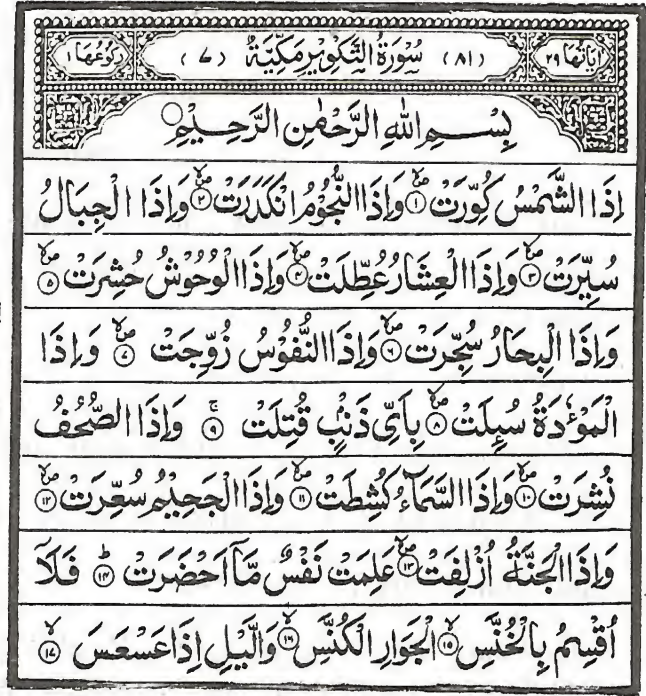 اٰیَاتُهَا ٢٩ (٨١) سُوْرَةُ التَّكْوِيْرِ مَكِّيَّةٌ (٧) رُكُوْعُهَا ١
بِسْمِ اللهِ الرَّحْمٰنِ الرَّحِيْمِ
اِذَا الشَّمْسُ كُوِّرَتْ ۙ‏﴿۱﴾ وَاِذَا النُّجُوْمُ انْكَدَرَتْ ۙ‏﴿۲﴾ وَاِذَا الْجِبَالُ
سُيِّرَتْ ۙ‏﴿۳﴾ وَاِذَا الْعِشَارُ عُطِّلَتْ ۙ‏﴿۴﴾ وَاِذَا الْوُحُوْشُ حُشِرَتْ ۙ‏﴿۵﴾
وَاِذَا الْبِحَارُ سُجِّرَتْ ۙ‏﴿۶﴾ وَاِذَا النُّفُوْسُ زُوِّجَتْ ۙ‏﴿۷﴾ وَاِذَا
الْمَوْءٗدَةُ سُىِٕلَتْ ۙ‏﴿۸﴾ بِاَىِّ ذَنْۢبٍ قُتِلَتْ ۚ‏﴿۹﴾ وَاِذَا الصُّحُفُ
نُشِرَتْ ۙ‏﴿۱۰﴾ وَاِذَا السَّمَآءُ كُشِطَتْ ۙ‏﴿۱۱﴾ وَاِذَا الْجَحِيْمُ سُعِّرَتْ ۙ‏﴿۱۲﴾
وَاِذَا الْجَنَّةُ اُزْلِفَتْ ۙ‏﴿۱۳﴾ عَلِمَتْ نَفْسٌ مَّاۤ اَحْضَرَتْ ؕ‏﴿۱۴﴾ فَلَاۤ
اُقْسِمُ بِالْخُنَّسِ ۙ‏﴿۱۵﴾ الْجَوَارِ الْكُنَّسِ ۙ‏﴿۱۶﴾ وَالَّيْلِ اِذَا عَسْعَسَ ۙ‏﴿۱۷﴾